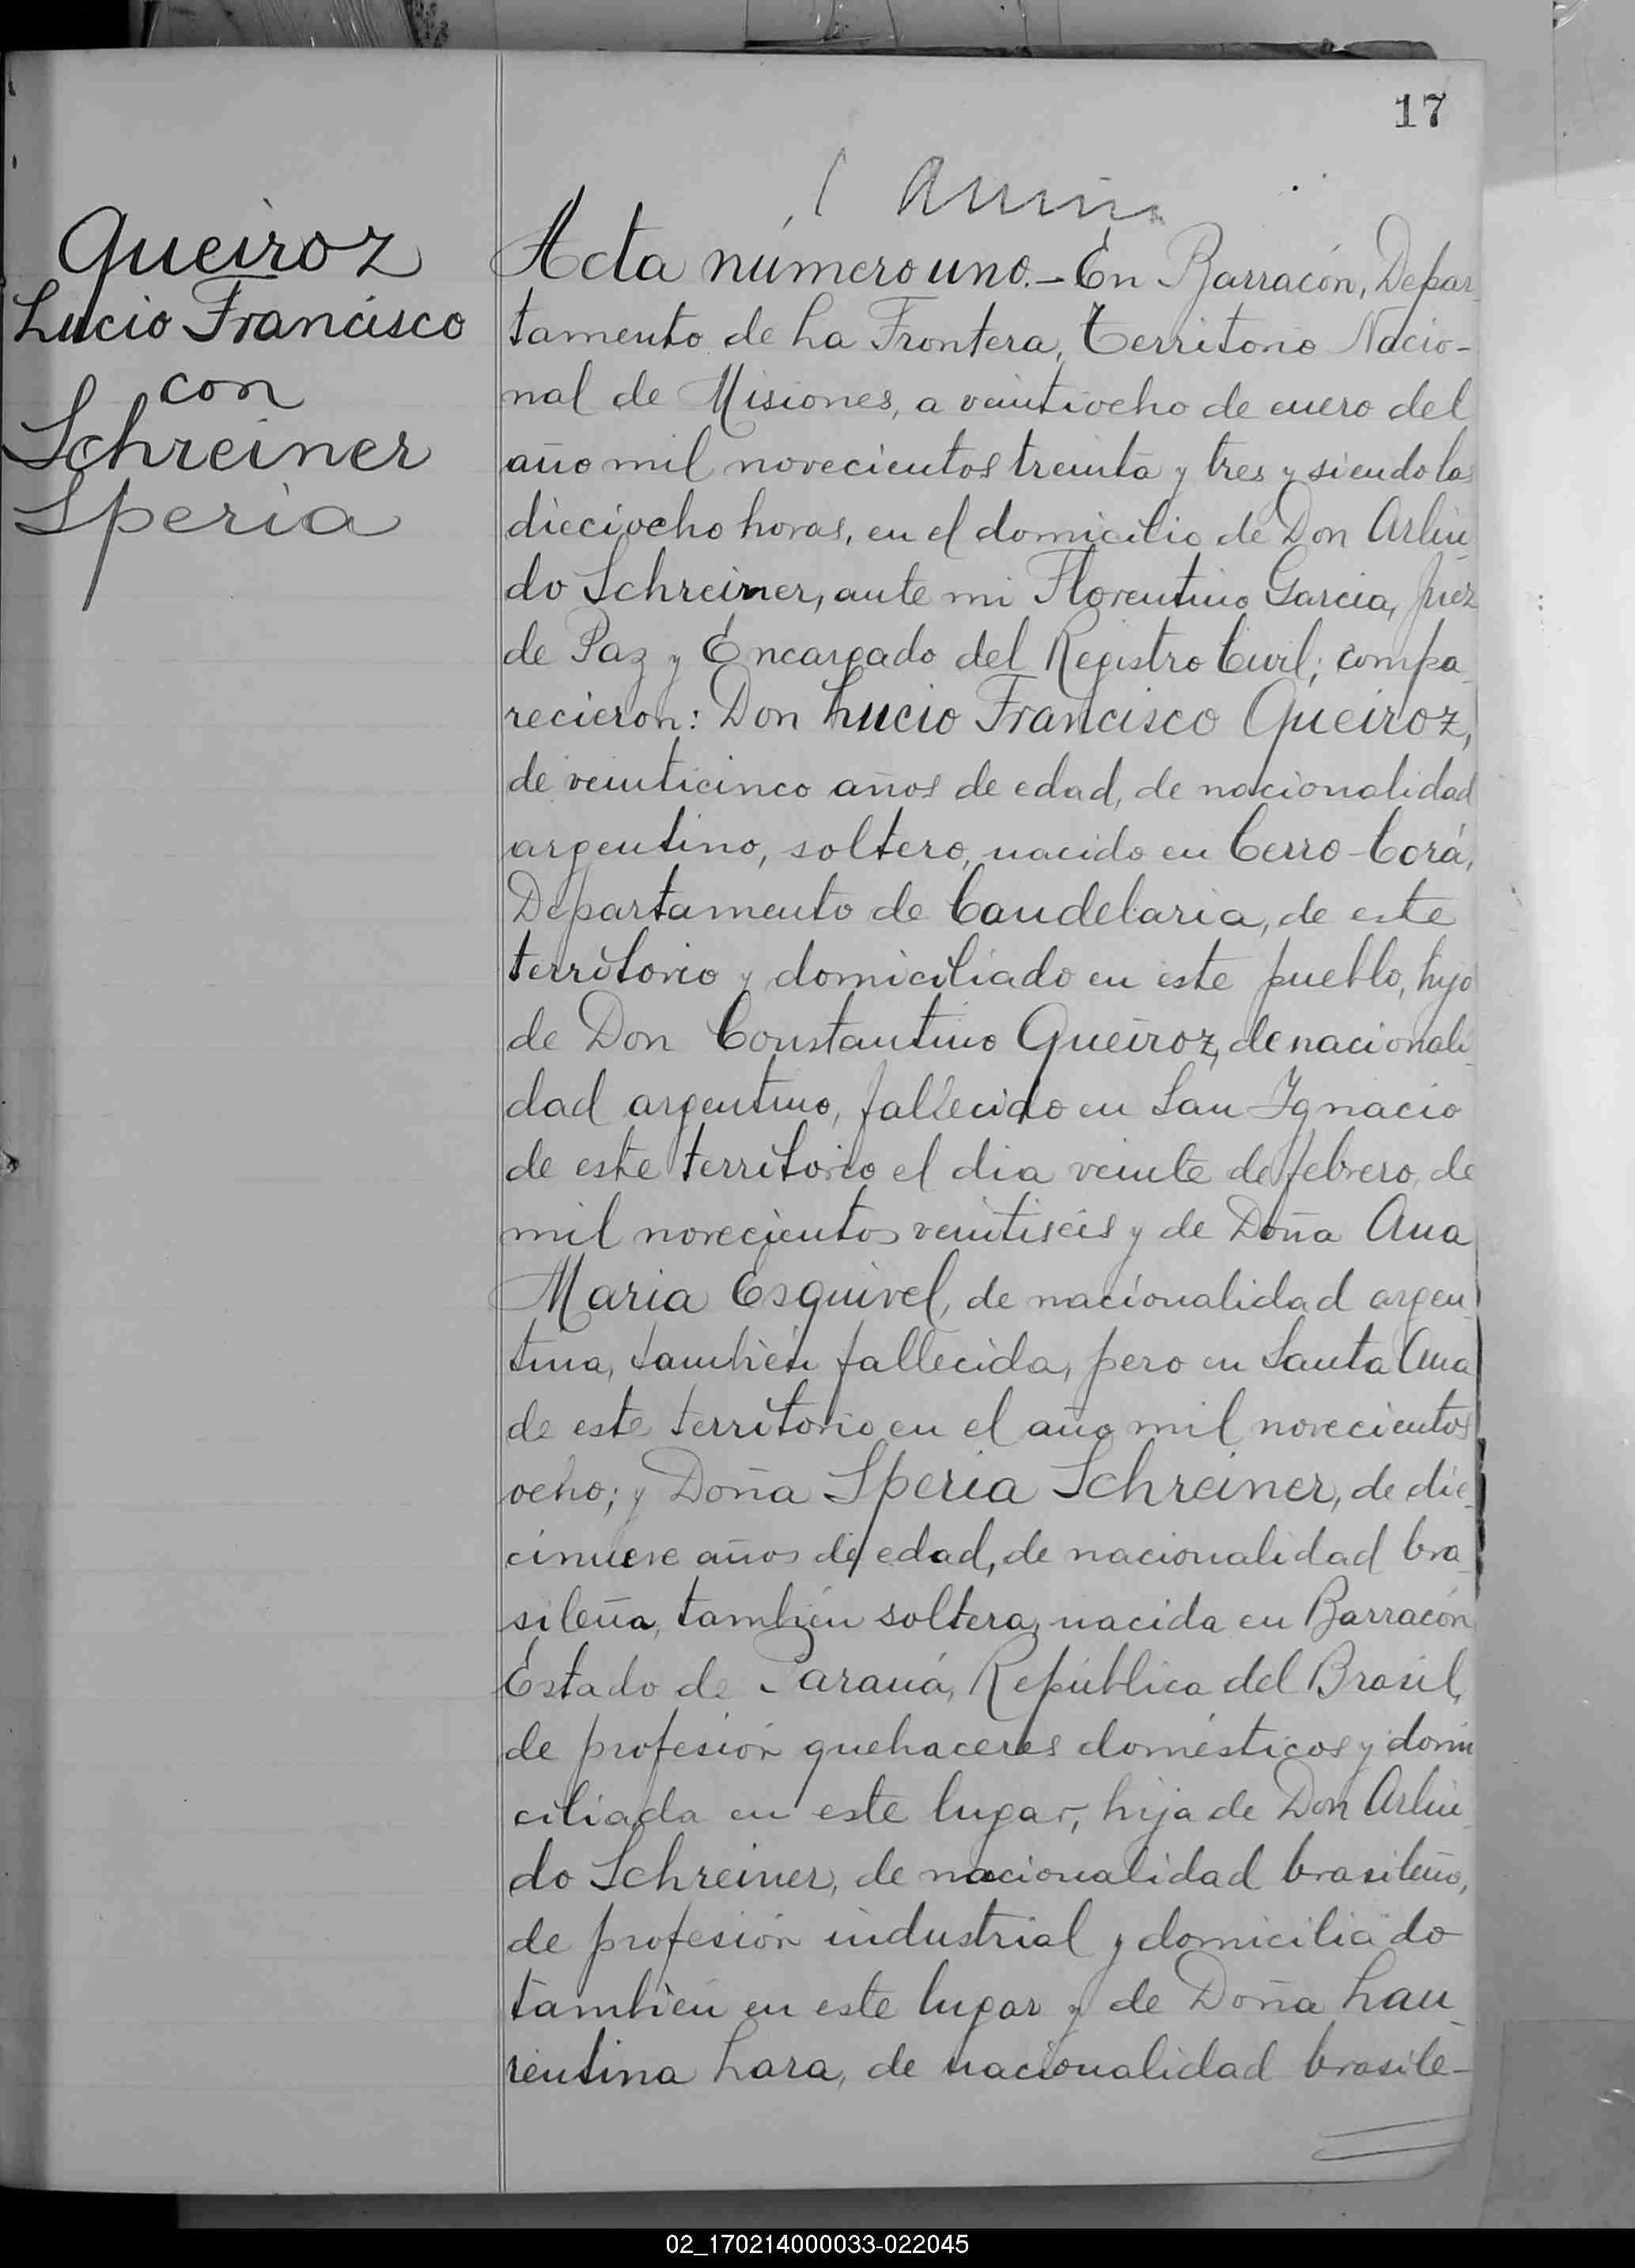 17
Queiroz
Lucio Francisco
con
Schreiner
Speria
Acta número uno.- En Barracón, Depar-
tamento de La Frontera, Territorio Nacio-
nal de Misiones, a veintiocho de enero del
año mil novecientos treinta y tres y siendo las
dieciocho horas, en el domicilio de Don Arlin-
do Schreiner, ante mi Florentino Garcia, Juez
de Paz y Encargado del Registro Civil; compa-
recieron: Don Lucio Francisco Queiroz,
de veinticinco años de edad, de nacionalidad
argentino, soltero, nacido en Cerro-Corá,
Departamento de Candelaria, de este
territorio y domiciliado en este pueblo, hijo
de Don Constantino Queiroz, de nacionali-
dad argentino, fallecido en San Ignacio
de este territorio el dia veinte de febrero de
mil novecientos veintiseis y de Doña Ana
Maria Esquivel, de nacionalidad argen-
tina, también fallecida, pero en Santa Ana
de este territorio en el año mil novecientos
ocho; y Doña Speria Schreiner, de die-
cinueve años de edad, de nacionalidad bra-
sileña, también soltera, nacida en Barracón
Estado de Paraná, República del Brasil,
de profesión quehaceres domésticos y domi
ciliada en este lugar, hija de Don Arlin-
do Schreiner, de nacionalidad brasileño,
de profesión industrial y domiciliado
también en este lugar y de Doña Lau-
rentina Lara, de nacionalidad brasile-
02_170214000033-022045